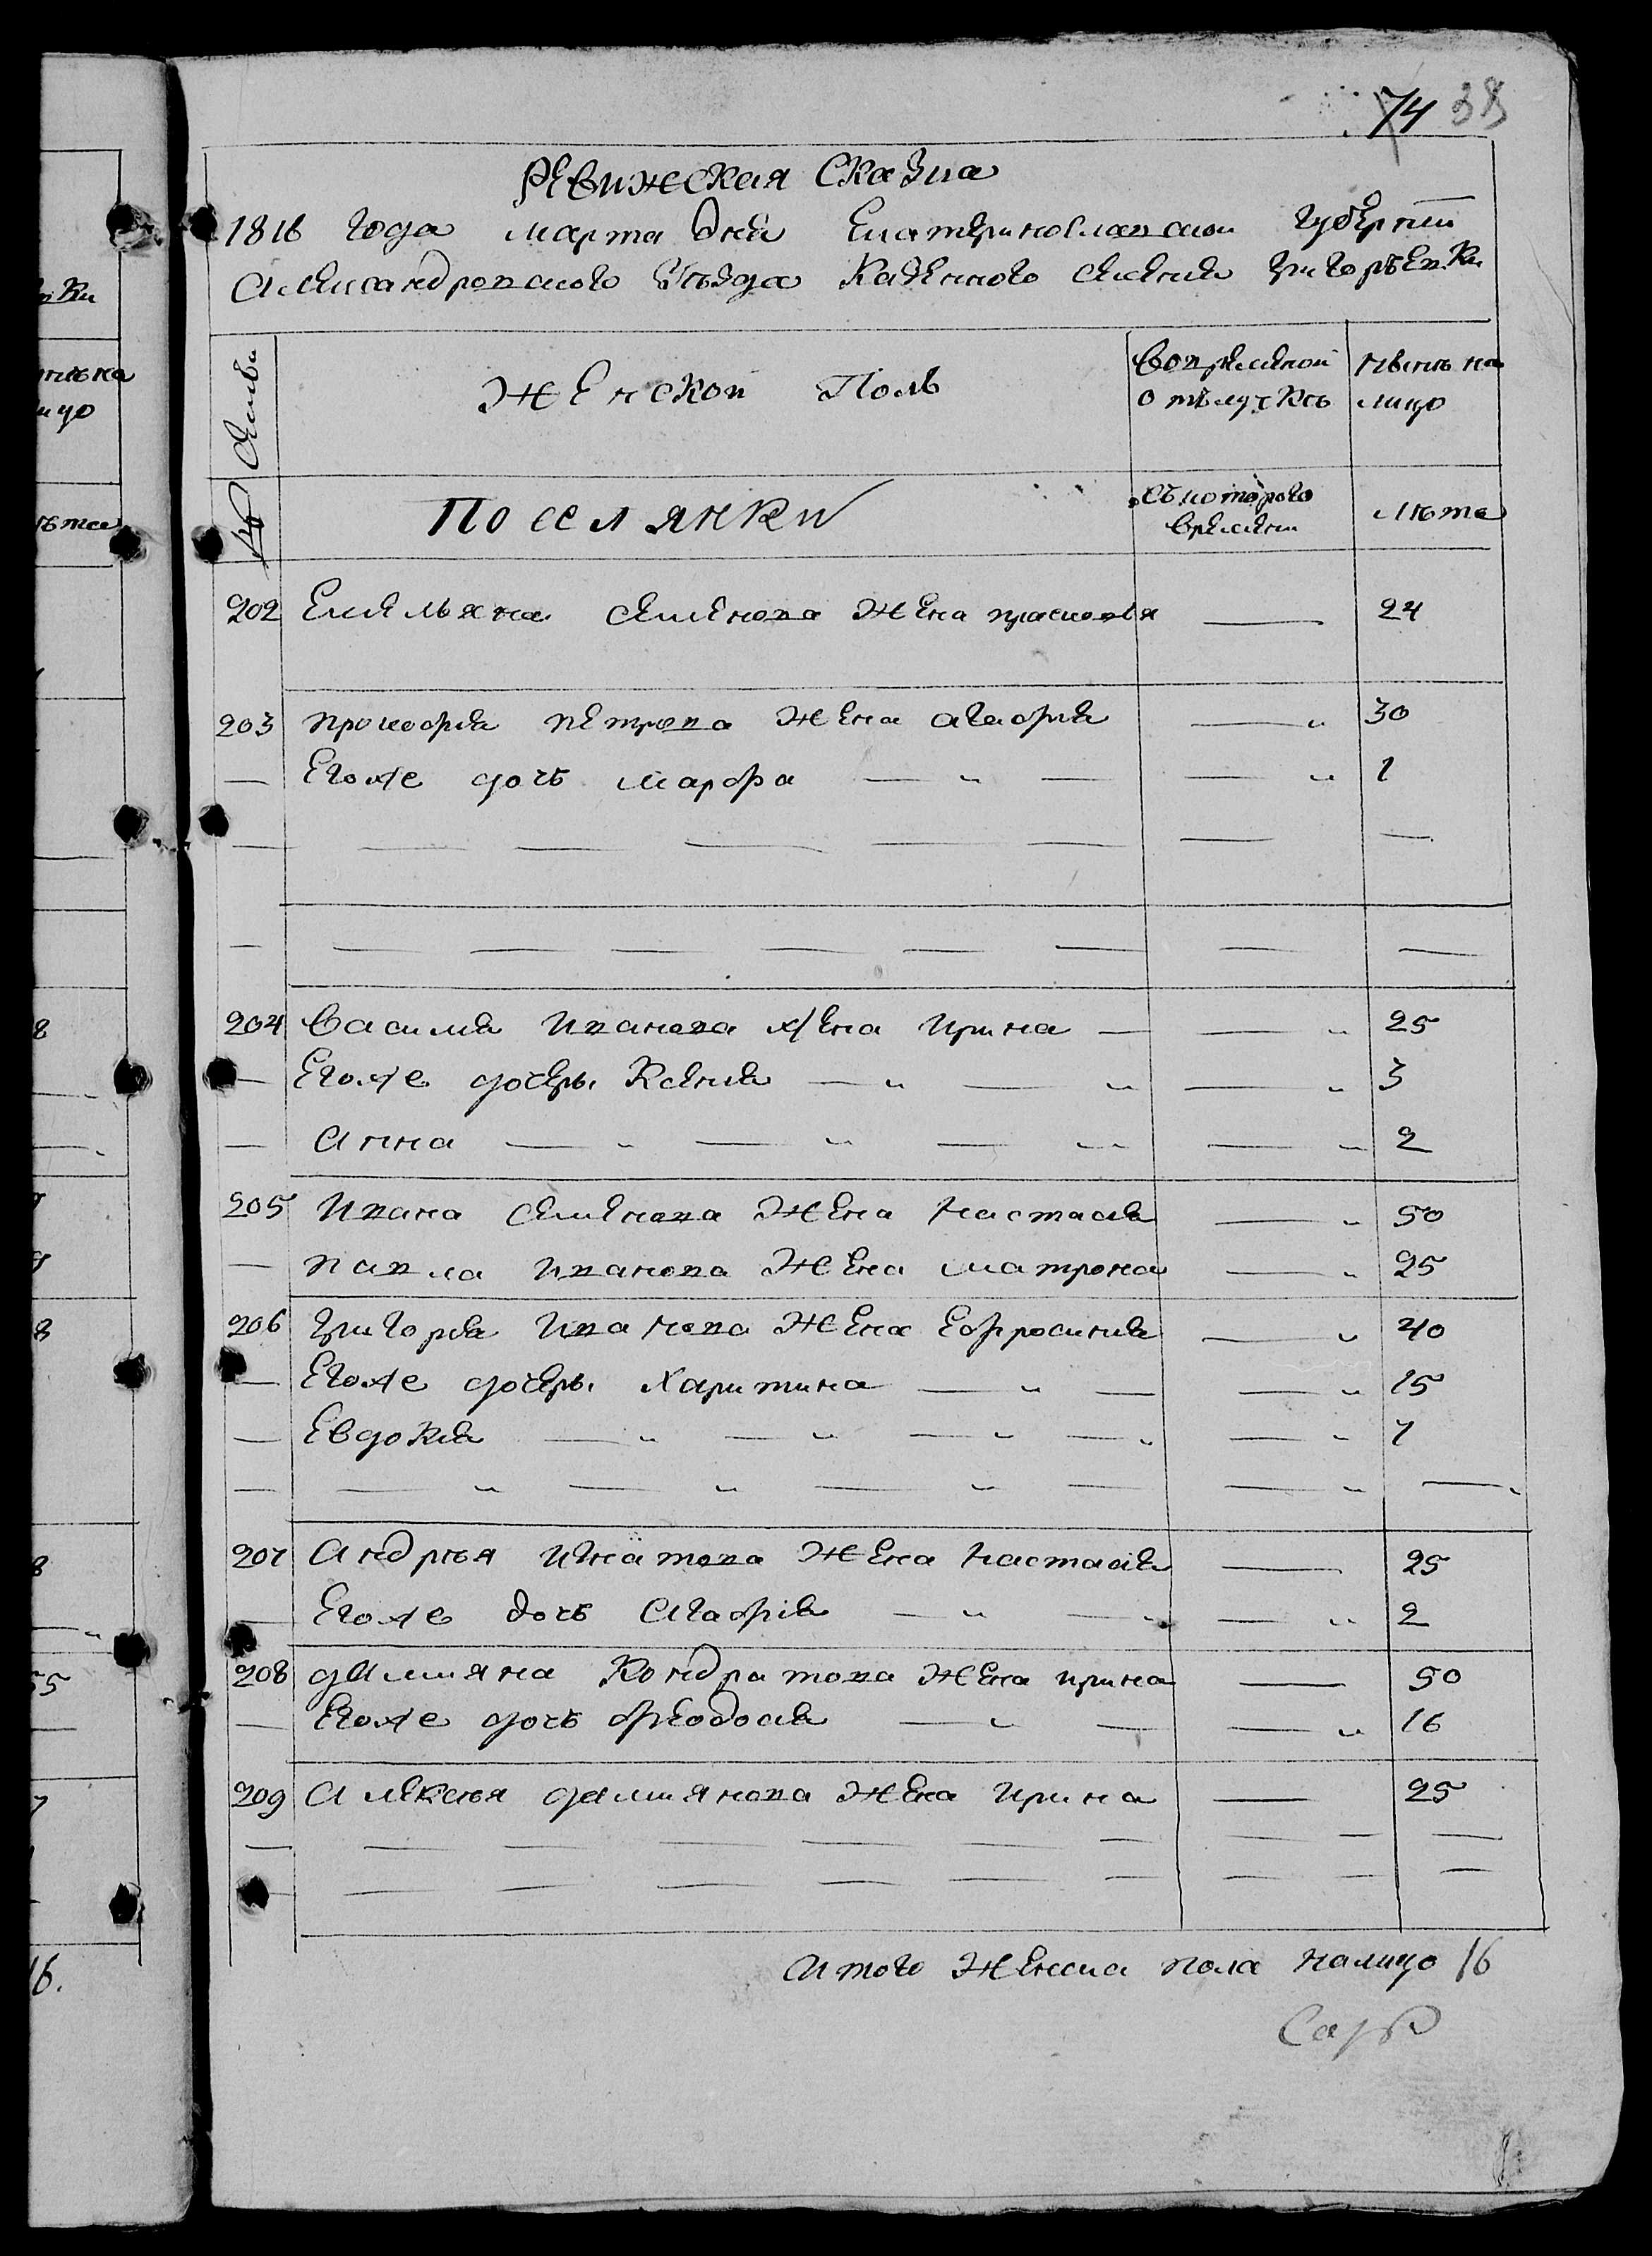 74 38
Ревижская Сказка
1816 Года марта дня Екатеринославской Губернии
Александровского Уѣзда Казенного селения Григорьевки
№ Семьи
Женской Полъ
Вовремянной отлучкѣ
Нынѣ на лицо
Поселянки
Съ которого времяни
Лѣта
202 Емельяна Семенова Жена прасковья — 24
203 прокофия петрова Жена агафия — 30
— Егоже дочь марфа — 1
204 Василия Иванова жена Ирина — 25
— Егоже дочери Ксения — 3
— Анна — 2
205 Ивана Семенова Жена Настасия — 50
— павла Иванова Жена матрона — 25
206 Григория Иванова Жена Ефросиния — 40
— Егоже дочери Харитина — 15
— Евдокия — 7
207 Андрѣя Игнатова Жена Настасия — 25
— Егоже дочь Агафия — 2
208 демияна Кондратова Жена ирина — 50
— Егоже дочь Феодосия — 16
209 Алексѣя демиянова Жена Ирина — 25
Итого Женска пола налицо 16